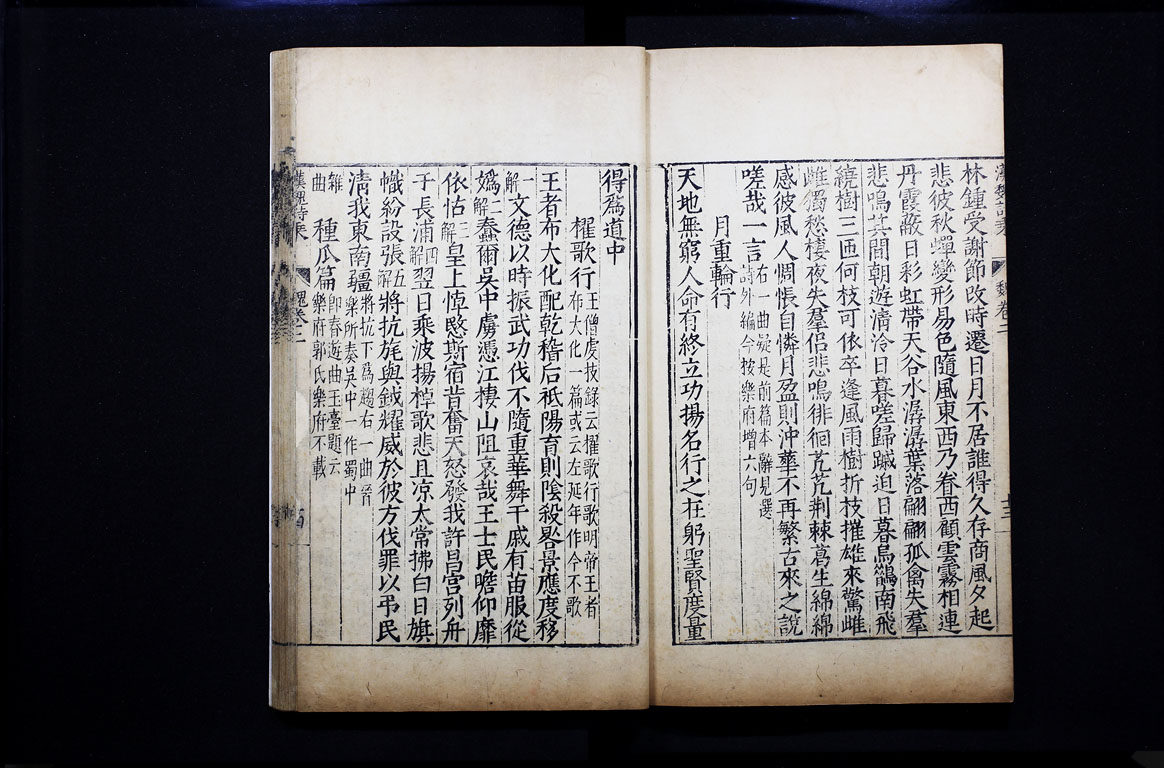 林鍾受謝節改時遷日月不居誰得久存商風夕起
悲彼秋蟬變形易色隨風東西乃眷西顧雲霧相連
丹霞蔽日彩虹帶天谷水潺潺葉落翩翩孤禽失羣
悲鳴其間朝遊清泠日暮嗟歸蹴迫日暮烏鵲南飛
繞樹三匝何枝可依卒逢風雨樹折枝摧雄來驚雌
雌獨愁棲夜失羣侣悲鳴徘徊芃芃荆棘葛生綿綿
感彼風人惆悵自憐月盈則沖華不再繁古來之說
嗟哉一言右一曲疑是前篇本辭見選
詩外編今按樂府增六句
月重輪行
天地無窮人命有終立功揚名行之在躬聖賢度量
得爲道中
櫂歌行王僧虔技錄云櫂歌行歌明帝王者
布大化一篇或云左延年作今不歌
王者布大化配乾稽后祇陽育則陰殺晷景應度移
一解文德以時振武功伐不隨重華舞干戚有苗服從
嬀二解蠢爾吳中虜憑江棲山阻哀哉王士民瞻仰靡
依怙三解皇上悼愍斯宿昔奮天怒發我許昌宮列舟
于長浦四解翌日乘波揚棹歌悲且凉太常拂白日旗
幟紛設張五解將抗旄與鉞耀威於彼方伐罪以弔民
淸我東南疆將抗下爲趨右一曲晉
樂所奏吳中一作蜀中
雜曲
種瓜篇即春遊曲玉臺題云
樂府郭氏樂府不載